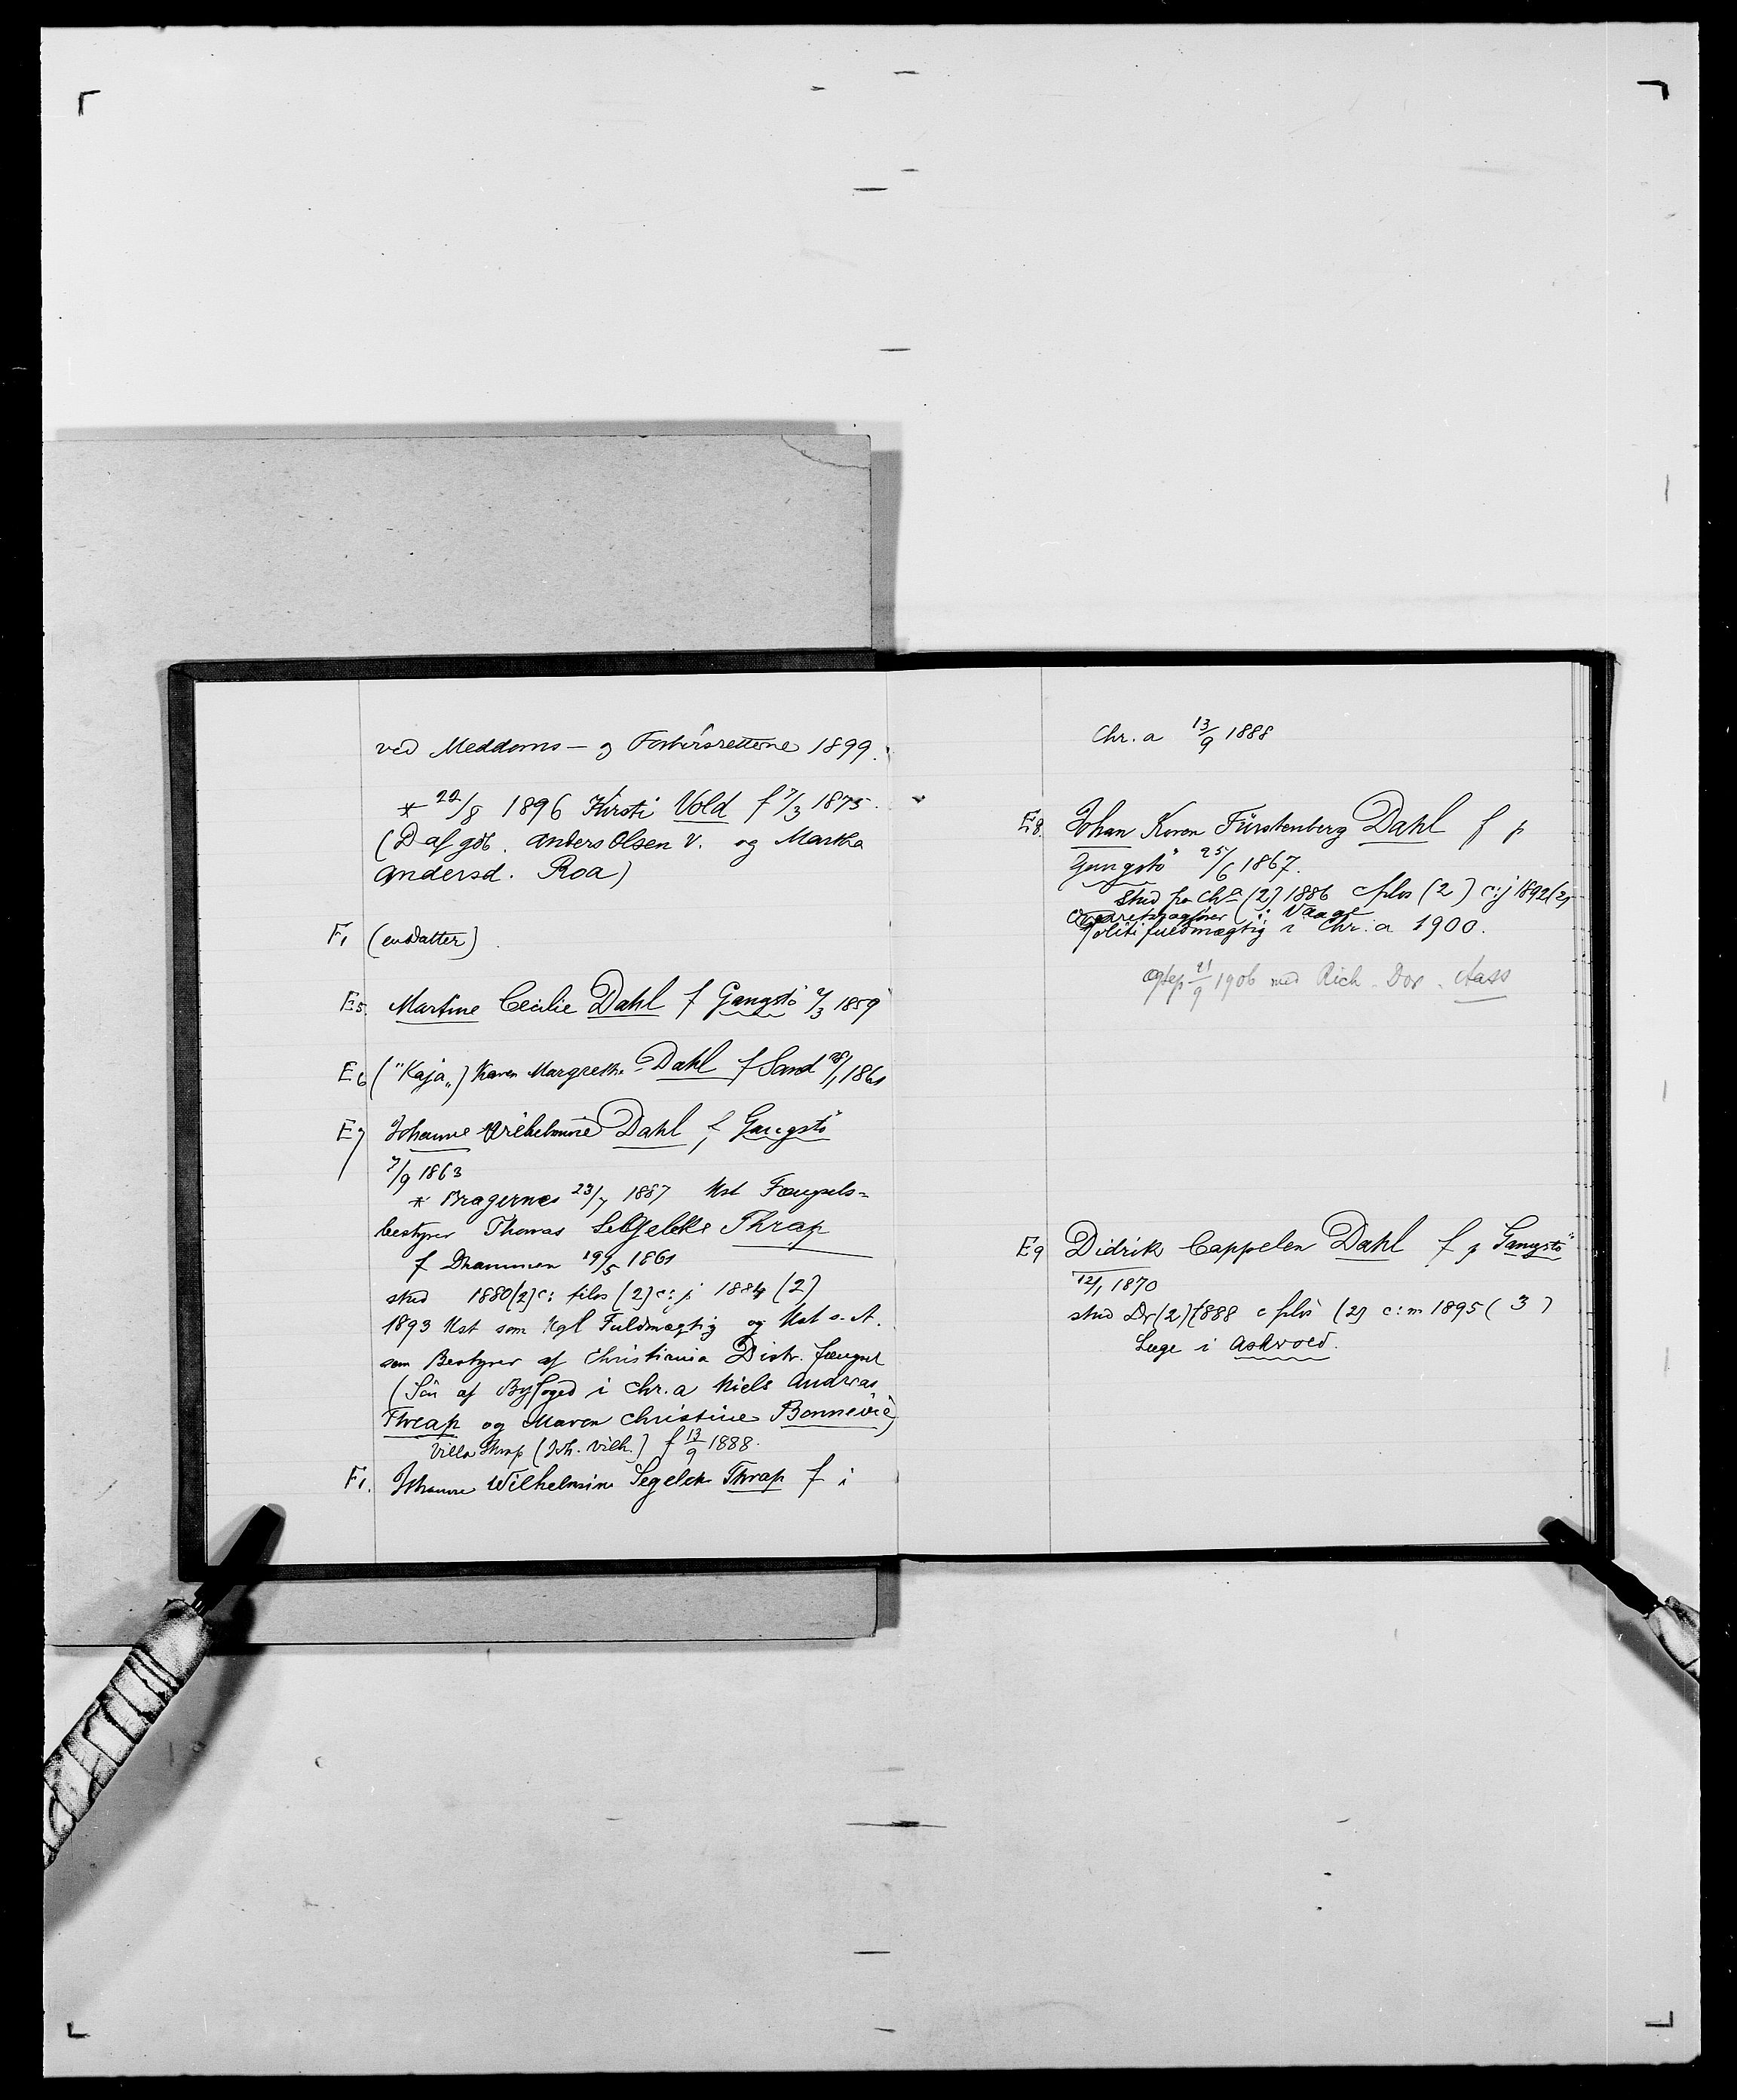 ved Meddoms- og Forhørsrettene 1899.
* 22/8 1896 Kirsti Vold f 7/3 1875.
(D af gdb. Anders Olsen V. og Martha
Andersd. Roa)
F1 (en datter)
E5. Martine Cecilie Dahl f Gangstö 7/3 1859
E6 ("Kaja") Karen Margrethe Dahl f Sand 28/1 1861
E7 Johanne Wilhelmine Dahl f Gangstö
7/9 1863
* Bragernes 23/7 1887 Kst Fængsels=
bestyrer Thomas Segelcke Thrap
f Drammen 19/5 1861
stud 1880 (2) c: filos (2) c: j 1884 (2)
1893 Kst som Kgl Fuldmægtig og Kst s. A.
som Bestyrer af Christiania Distr. fængsel
(Sön af Byfoged i Chr.a Niels Andreas
Thrap og Maren Christine Bonnevie)
Villa Thrap (Joh. Vilh.) f 13/9 1888.
F1. Johanne Wilhelmine Segelck Thrap f i
Chr.a 13/9 1888
E8. Johan Koren Fürstenberg Dahl f p
Gangstö 25/6 1867.
stud fra Chra (2) 1886 c filos (2) c: j 1892 (2)
Overretssagfører i Vaage
Politifuldmægtig i Chr.a 1900.
Ogtep 21/9 1906 med Rich. Dor. Aass
E9 Didrik Cappelen Dahl f p Gangstö
12/1 1870
stud Dr (2) 1888 c filos (2) c: m 1895 (3)
Læge i Askvold.